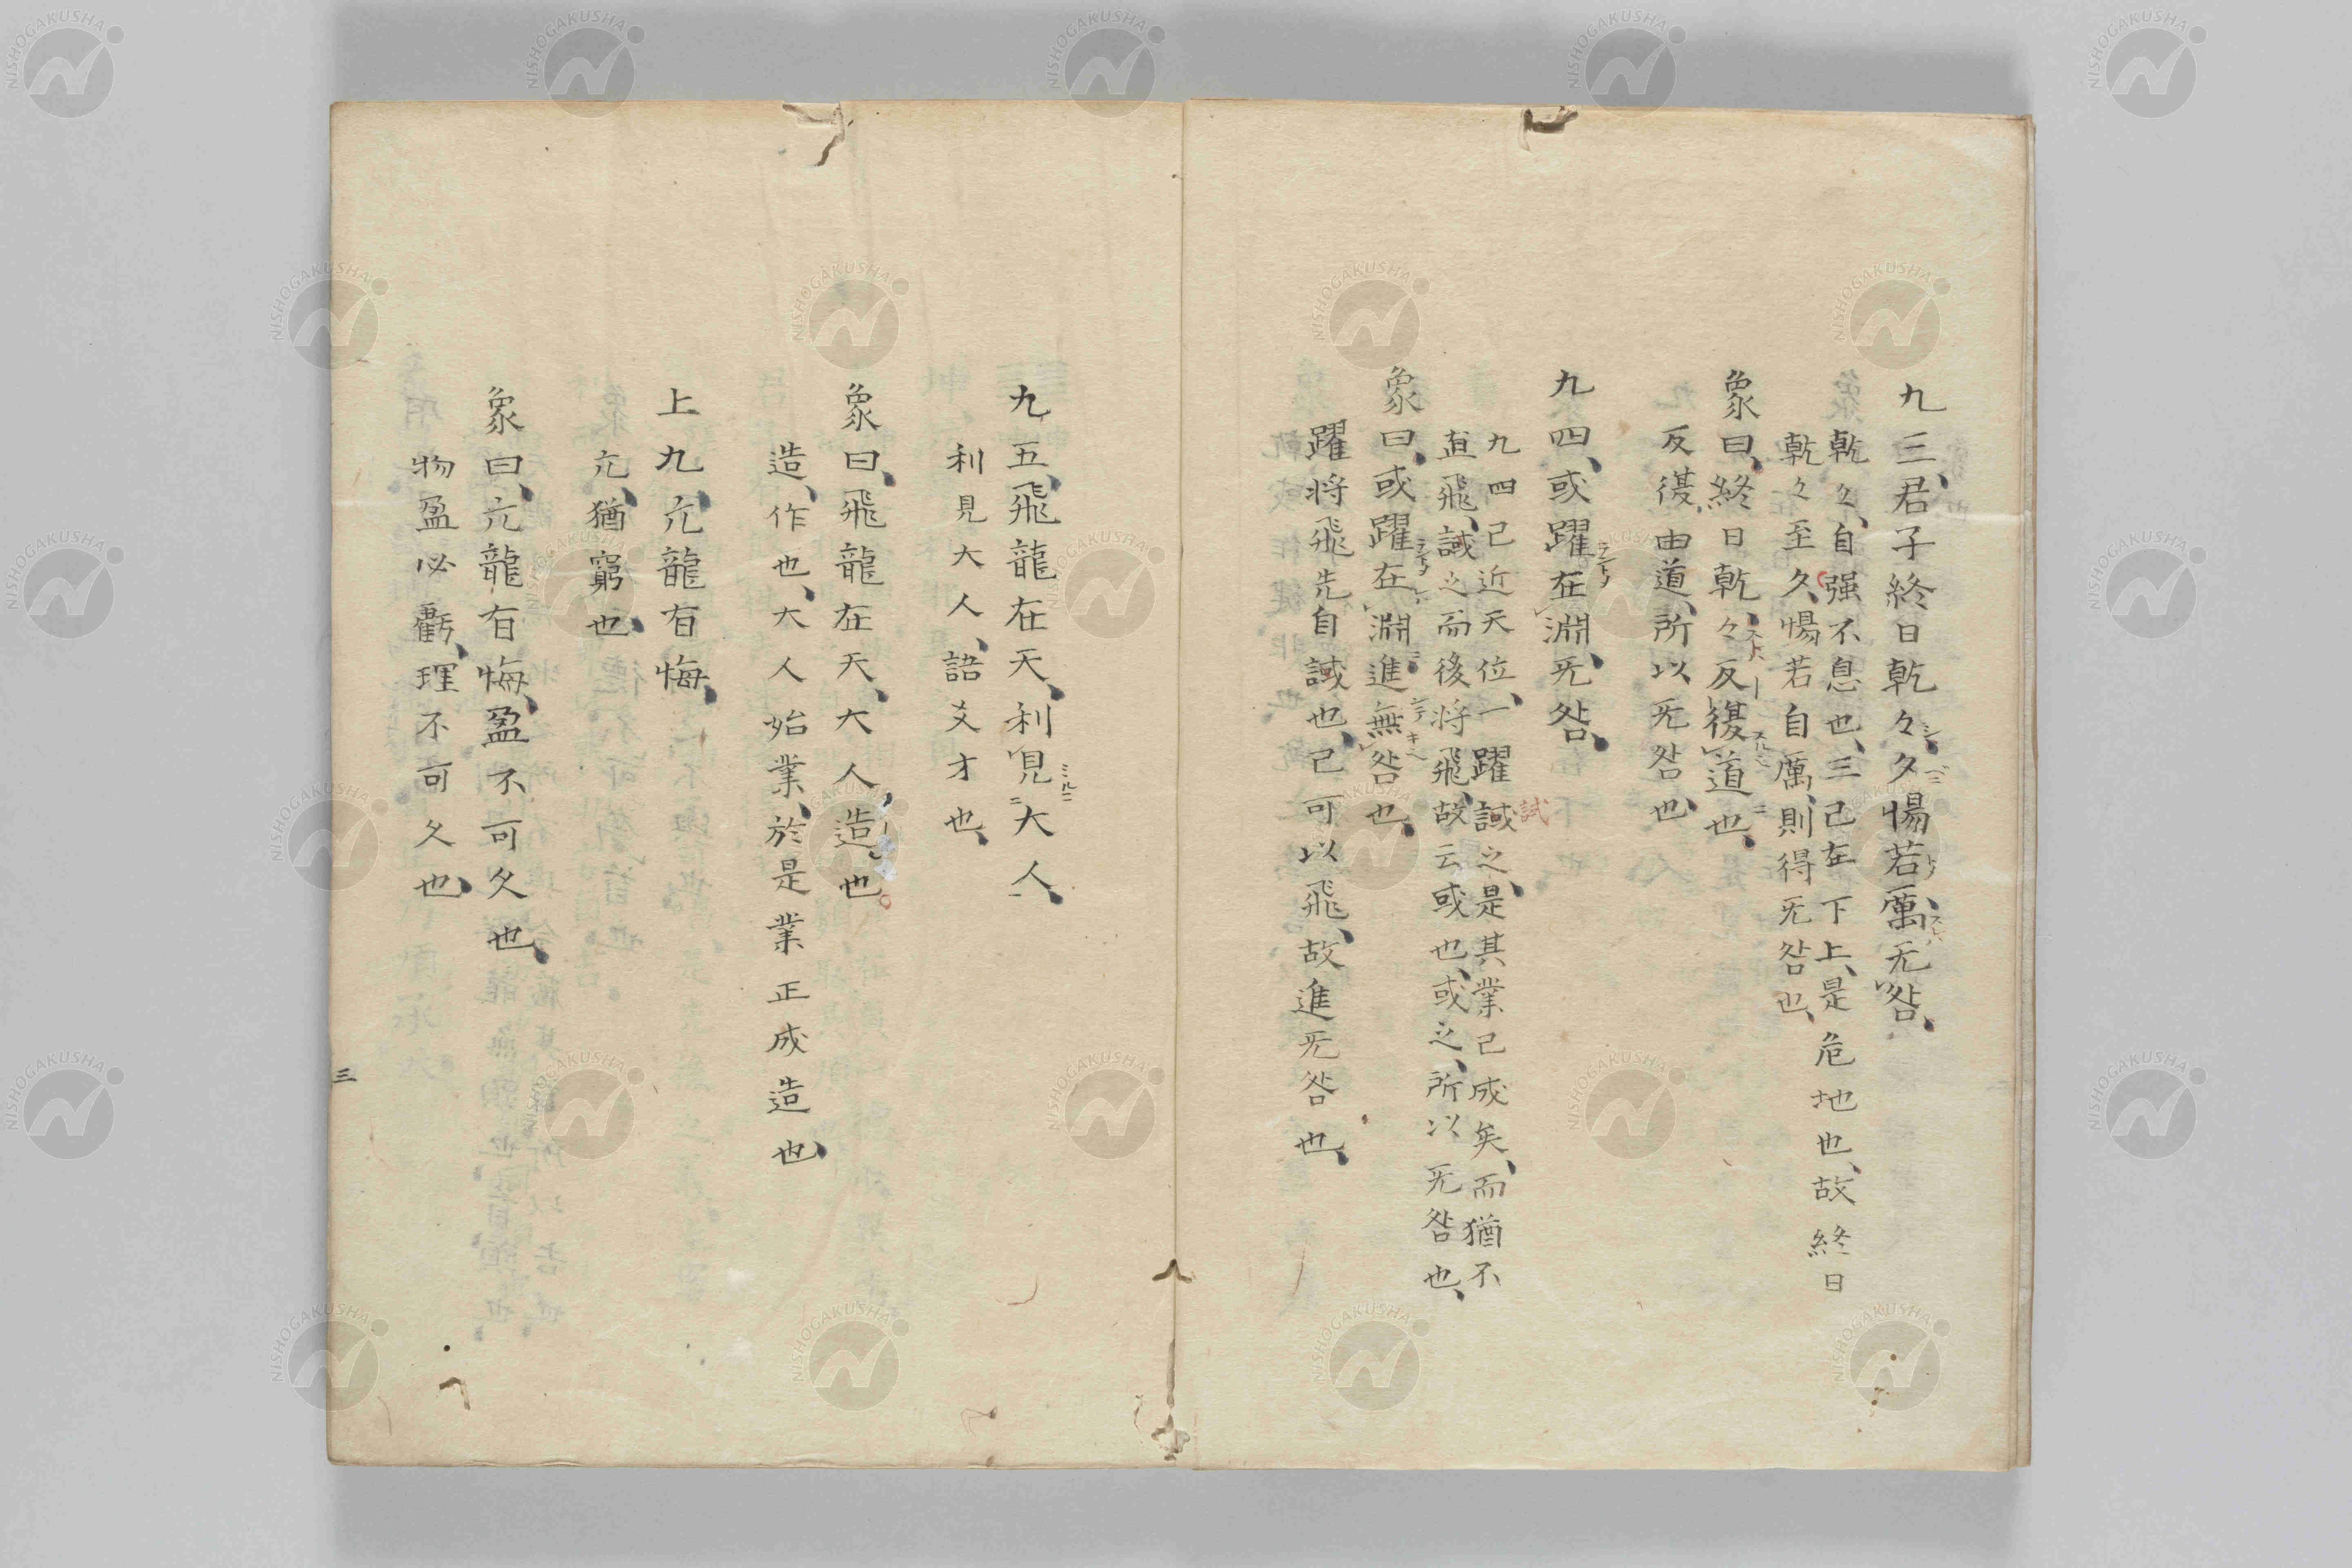 九三、君子終日乾々、夕惕若厲、无咎、
乾々、自强不息也、三已在下上、是危地也、故終日
乾々至夕、惕若自厲、則得旡咎也、
象曰、終日乾々、反復道也、
反復由道、所以旡咎也、
九四、或躍在淵、旡咎、
試
九四已近天位、一躍試之、是其業已成矣、而猶不
直飛、試之而後将飛、故云或也、或之、所以旡咎也、
象曰、或躍在淵、進無咎也、
躍将飛先自試也、已可以飛、故進旡咎也、
九五、飛龍在天、利見大人、
利見大人、語爻才也、
象曰、飛龍在天、大人造也
造、作也、大人始業、於是業正成造也、
上九、亢龍有悔、
亢、猶窮也、
象曰、亢龍有悔、盈不可久也、
物盈必虧、理不可久也、
三
NISHOGAKUSHA